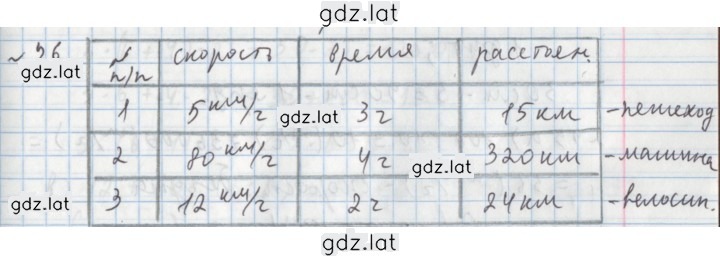 gdz.lat
№ 96
№ п/п скорость время расстоян.
gdz.lat
1 5 км/ч 3 ч 15 км - пешеход
gdz.lat
2 80 км/ч 4 ч 320 км - машина
gdz.lat
3 12 км/ч 2 ч 24 км - велосип.
gdz.lat
gdz.lat